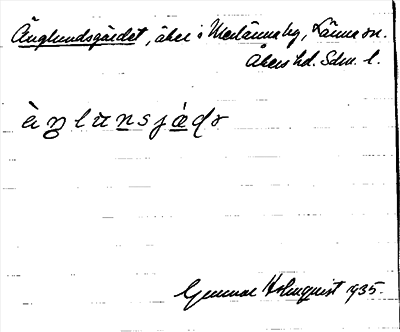 Änglundsgärdet, åker i Merlänna by, Länna sn.
Åkers hd. Sdm. l.
Gunnar Holmquist 1935.